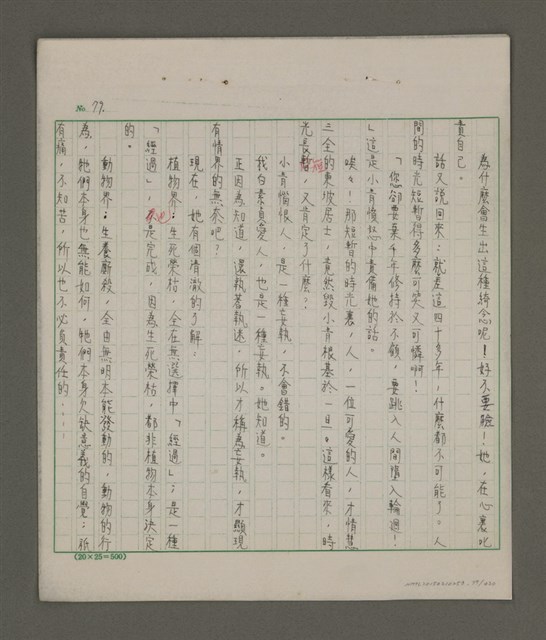 No. 79.
為什麼會生出這種綺念呢！好不要臉！她，在心裏叱
責自己。
話又說回來：就差這四十多年，什麼都不可能了。人
間的時光短暫得多麼可笑又可憐啊！
「您卻要棄千年修持於不顧，要跳入人間墮入輪迴！
」這是小青憤怒中責備她的話。
唉々！那短暫的時光裏，人，一位可愛的人，才情慧
三全的東坡居士，竟然毀小青根基於一旦。這樣看來，時
光長短，又肯定了什麼？
小青惱恨人，是一種妄執，不會錯的。
我白素貞愛人，也是一種妄執。她知道。
正因為知道，還執著執迷，所以才稱為妄執，才顯現
有情界的無奈吧？
現在，她有個清澈的了解：
植物界：生死榮枯，全在無選擇中「經過」；是一種
「經過」，也是完成，因為生死榮枯，都非植物本身決定
的。
動物界：生養廝殺，全由無明本能發動的，動物的行
為，牠們本身也無能如何，牠們本身欠缺意義的自覺；祇
有痛，不知苦，所以也不必負責任的……
(20×25=500)